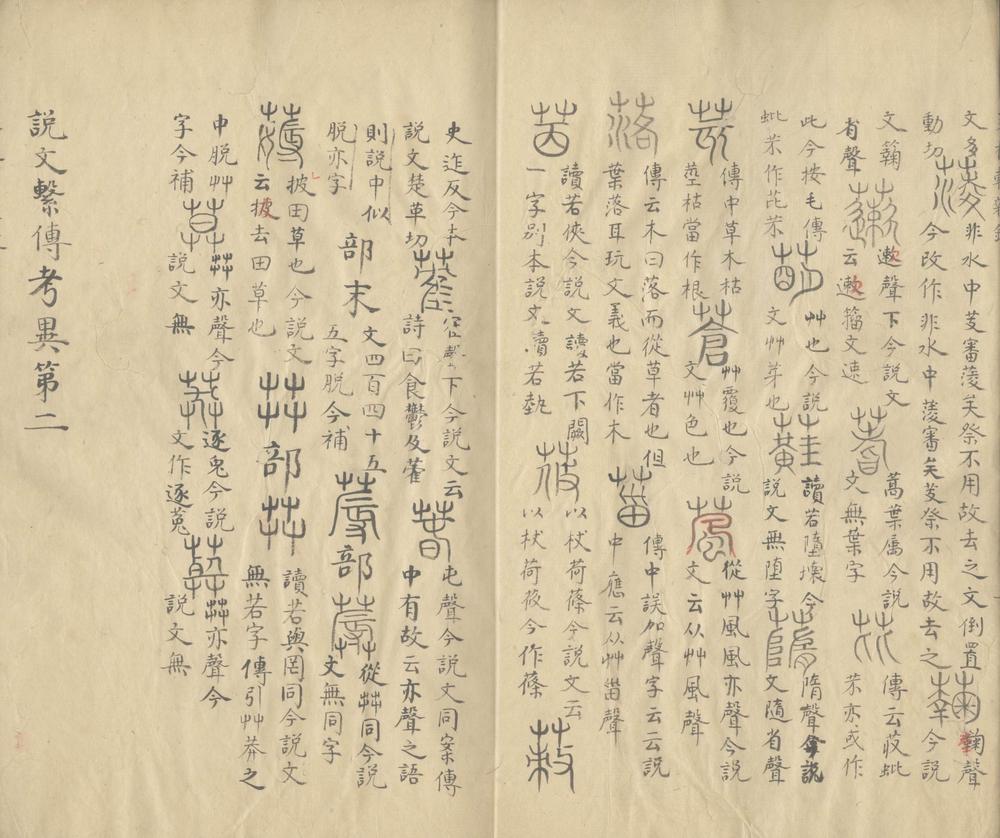 文多
動切
蔆
非水中芰審蔆芰祭不用故去之文倒置
今改作非水中蔆審矣芰祭不用故去之
蘜
鞠聲
今說
文鞠
省聲
藗
遬聲下今說文
云遬籀文速
蓍
蒿葉屬今說
文無葉字
芘
傳云茙蚍
芣亦或作
此今按毛傳
蚍芣作芘芣
萌
艸也今說
文艸芽也
蘳
讀若墮壞今
說文無墮字
隋聲今說
文隨省聲
茇
傳中草木枯
莖枯當作根
蒼
艸覆也今說
文艸色也
葻
從艸風風亦聲今說
文云从艸風聲
落
傳云木曰落而從草者也但
葉落耳玩文義也當作木
菑
傳中誤加聲字云云說
中應云从艸甾聲
讀若俠今說文讀若下闕
一字別本說文讀若執
莜
以杖荷篠今說文云
以杖荷莜今作篠
蓛
史迮反今本
說文楚革切
藿
隺聲下今說文云
詩曰食鬱及藿
萅
屯聲今說文同案傳
中有故云亦聲之語
則說中似
脫亦字
部末
文四百四十五
五字脫今補
蓐部
蓐
從茻同今說
文無同字
薅
披田草也今說文
云披去田草也
茻部
茻
讀若與罔同今說文
無若字傳引艸莽之
中脫艸
字今補
莫
茻亦聲今
說文無
莽
逐兔今說
文作逐菟
葬
茻亦聲今
說文無
說文繫傳考異第二